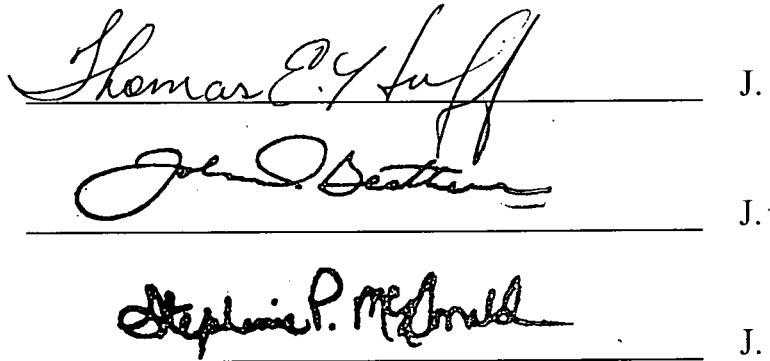 Thomas E. Huff J.
John D. Geathers J.
Stephanie P. McDonald J.